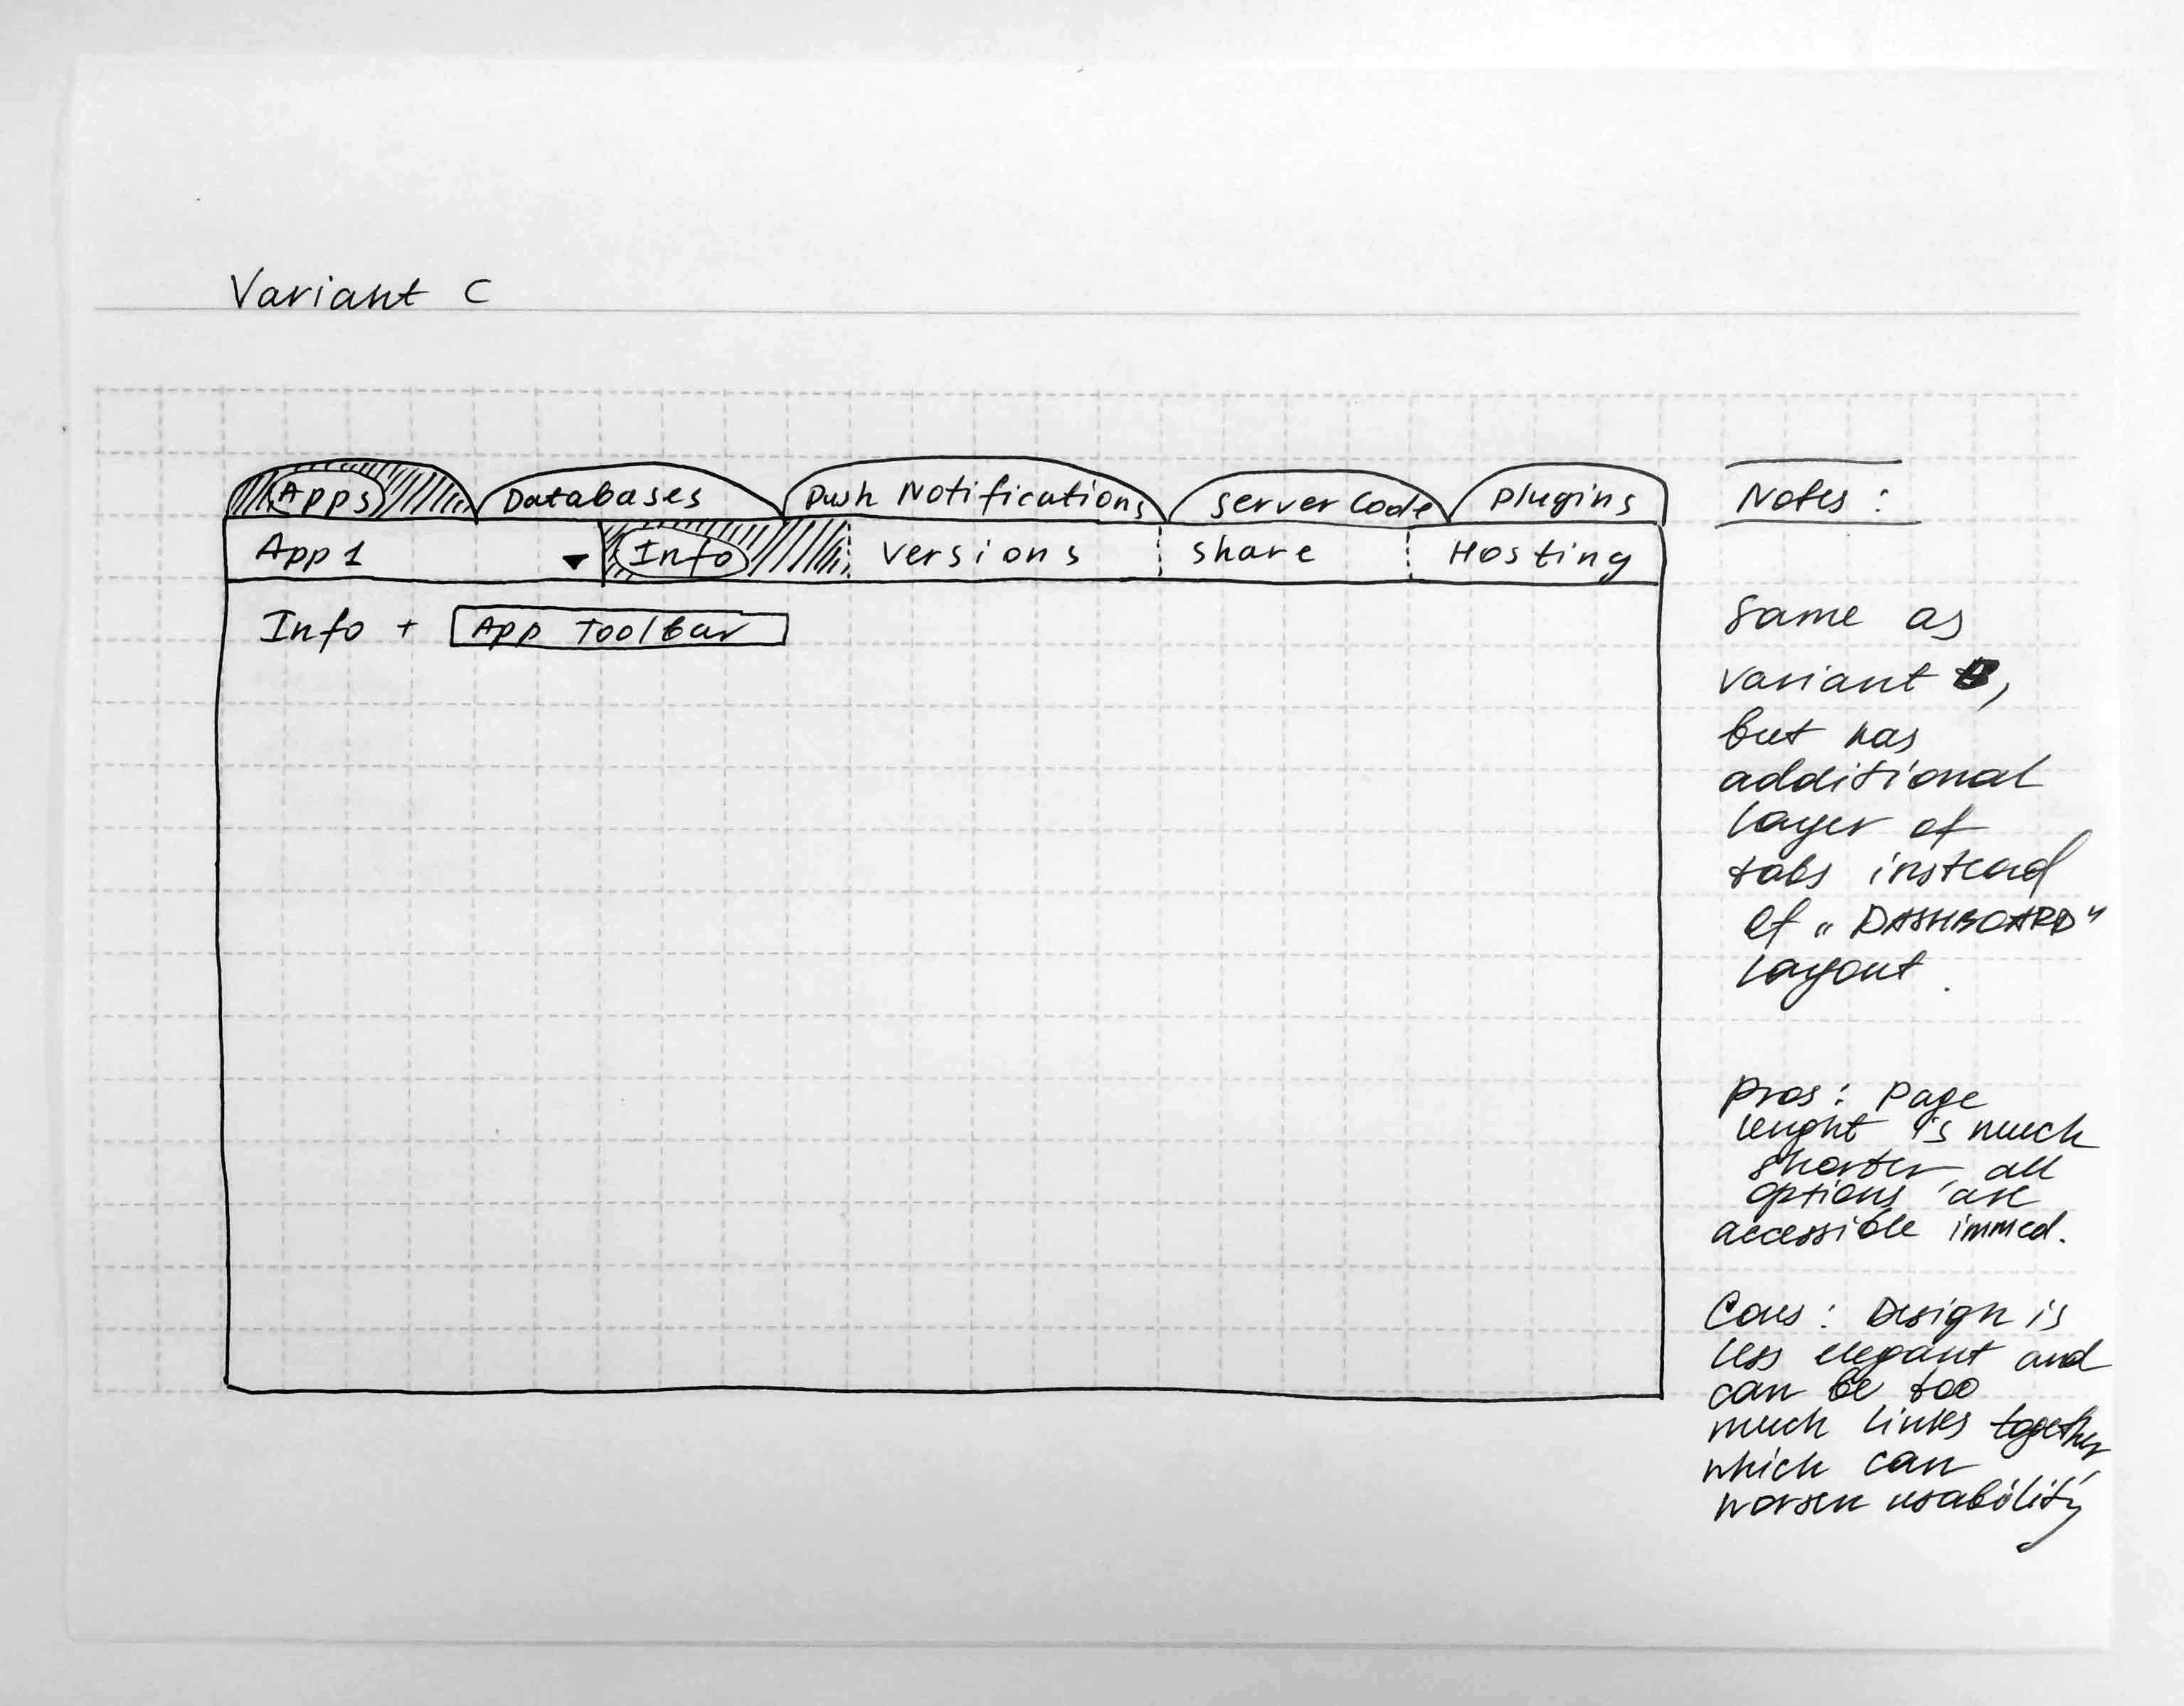 Variant C
Apps Databases Push Notifications Server Code Plugins
App 1 Info Versions Share Hosting
Info + App Toolbar
Notes:
Same as
variant B,
but has
additional
layer of
tabs instead
of "DASHBOARD"
layout.
Pros: Page
lenght is much
shorter, all
options are
accessible immed.
Cons: Design is
less elegant and
can be too
much links together
which can
worsen usability